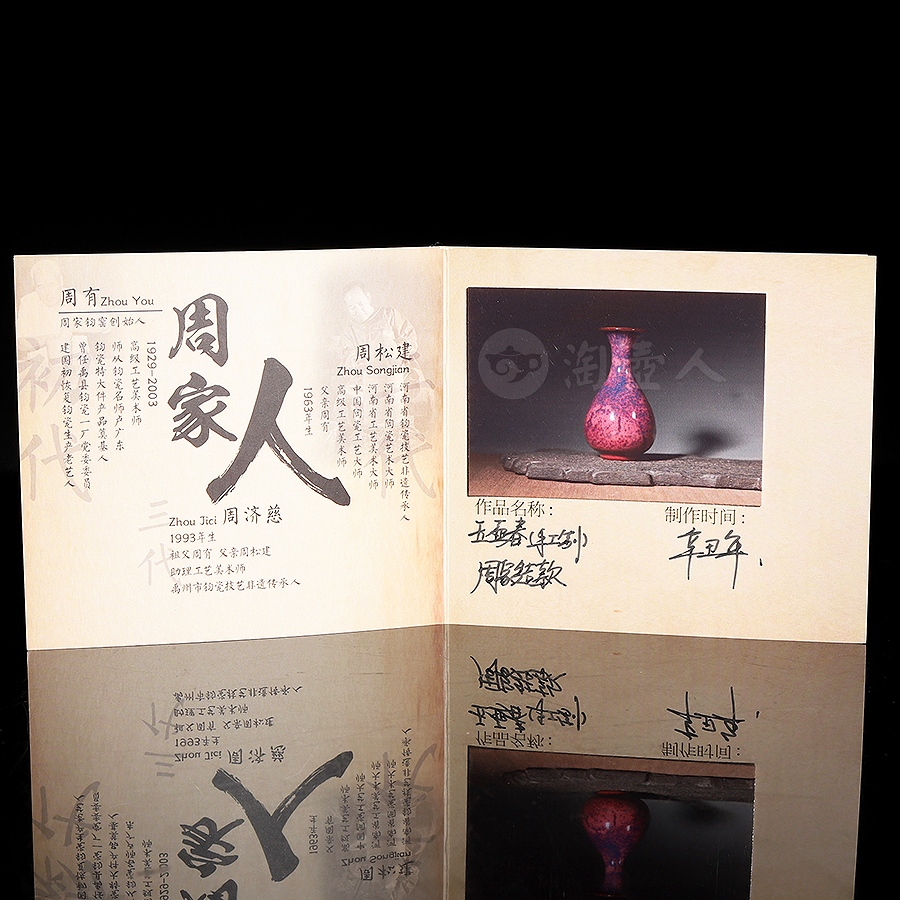 周有 Zhou You
周家钧窑创始人
1929-2003
高级工艺美术师
师从钧瓷名师卢广东
钧瓷特大件产品奠基人
曾任禹县钧瓷一厂党委委员
建国初恢复钧瓷生产老艺人
初代
周家人
周松建
Zhou Songjian
河南省钧瓷技艺非遗传承人
河南省陶瓷艺术大师
河南省工艺美术大师
中国陶瓷工艺大师
高级工艺美术师
父亲周有
1963年生
三代
Zhou Jici 周济慈
1993年生
祖父周有 父亲周松建
助理工艺美术师
禹州市钧瓷技艺非遗传承人
淘壶人
作品名称:
玉壶春(手工制)
周家窑款
制作时间:
辛丑年.